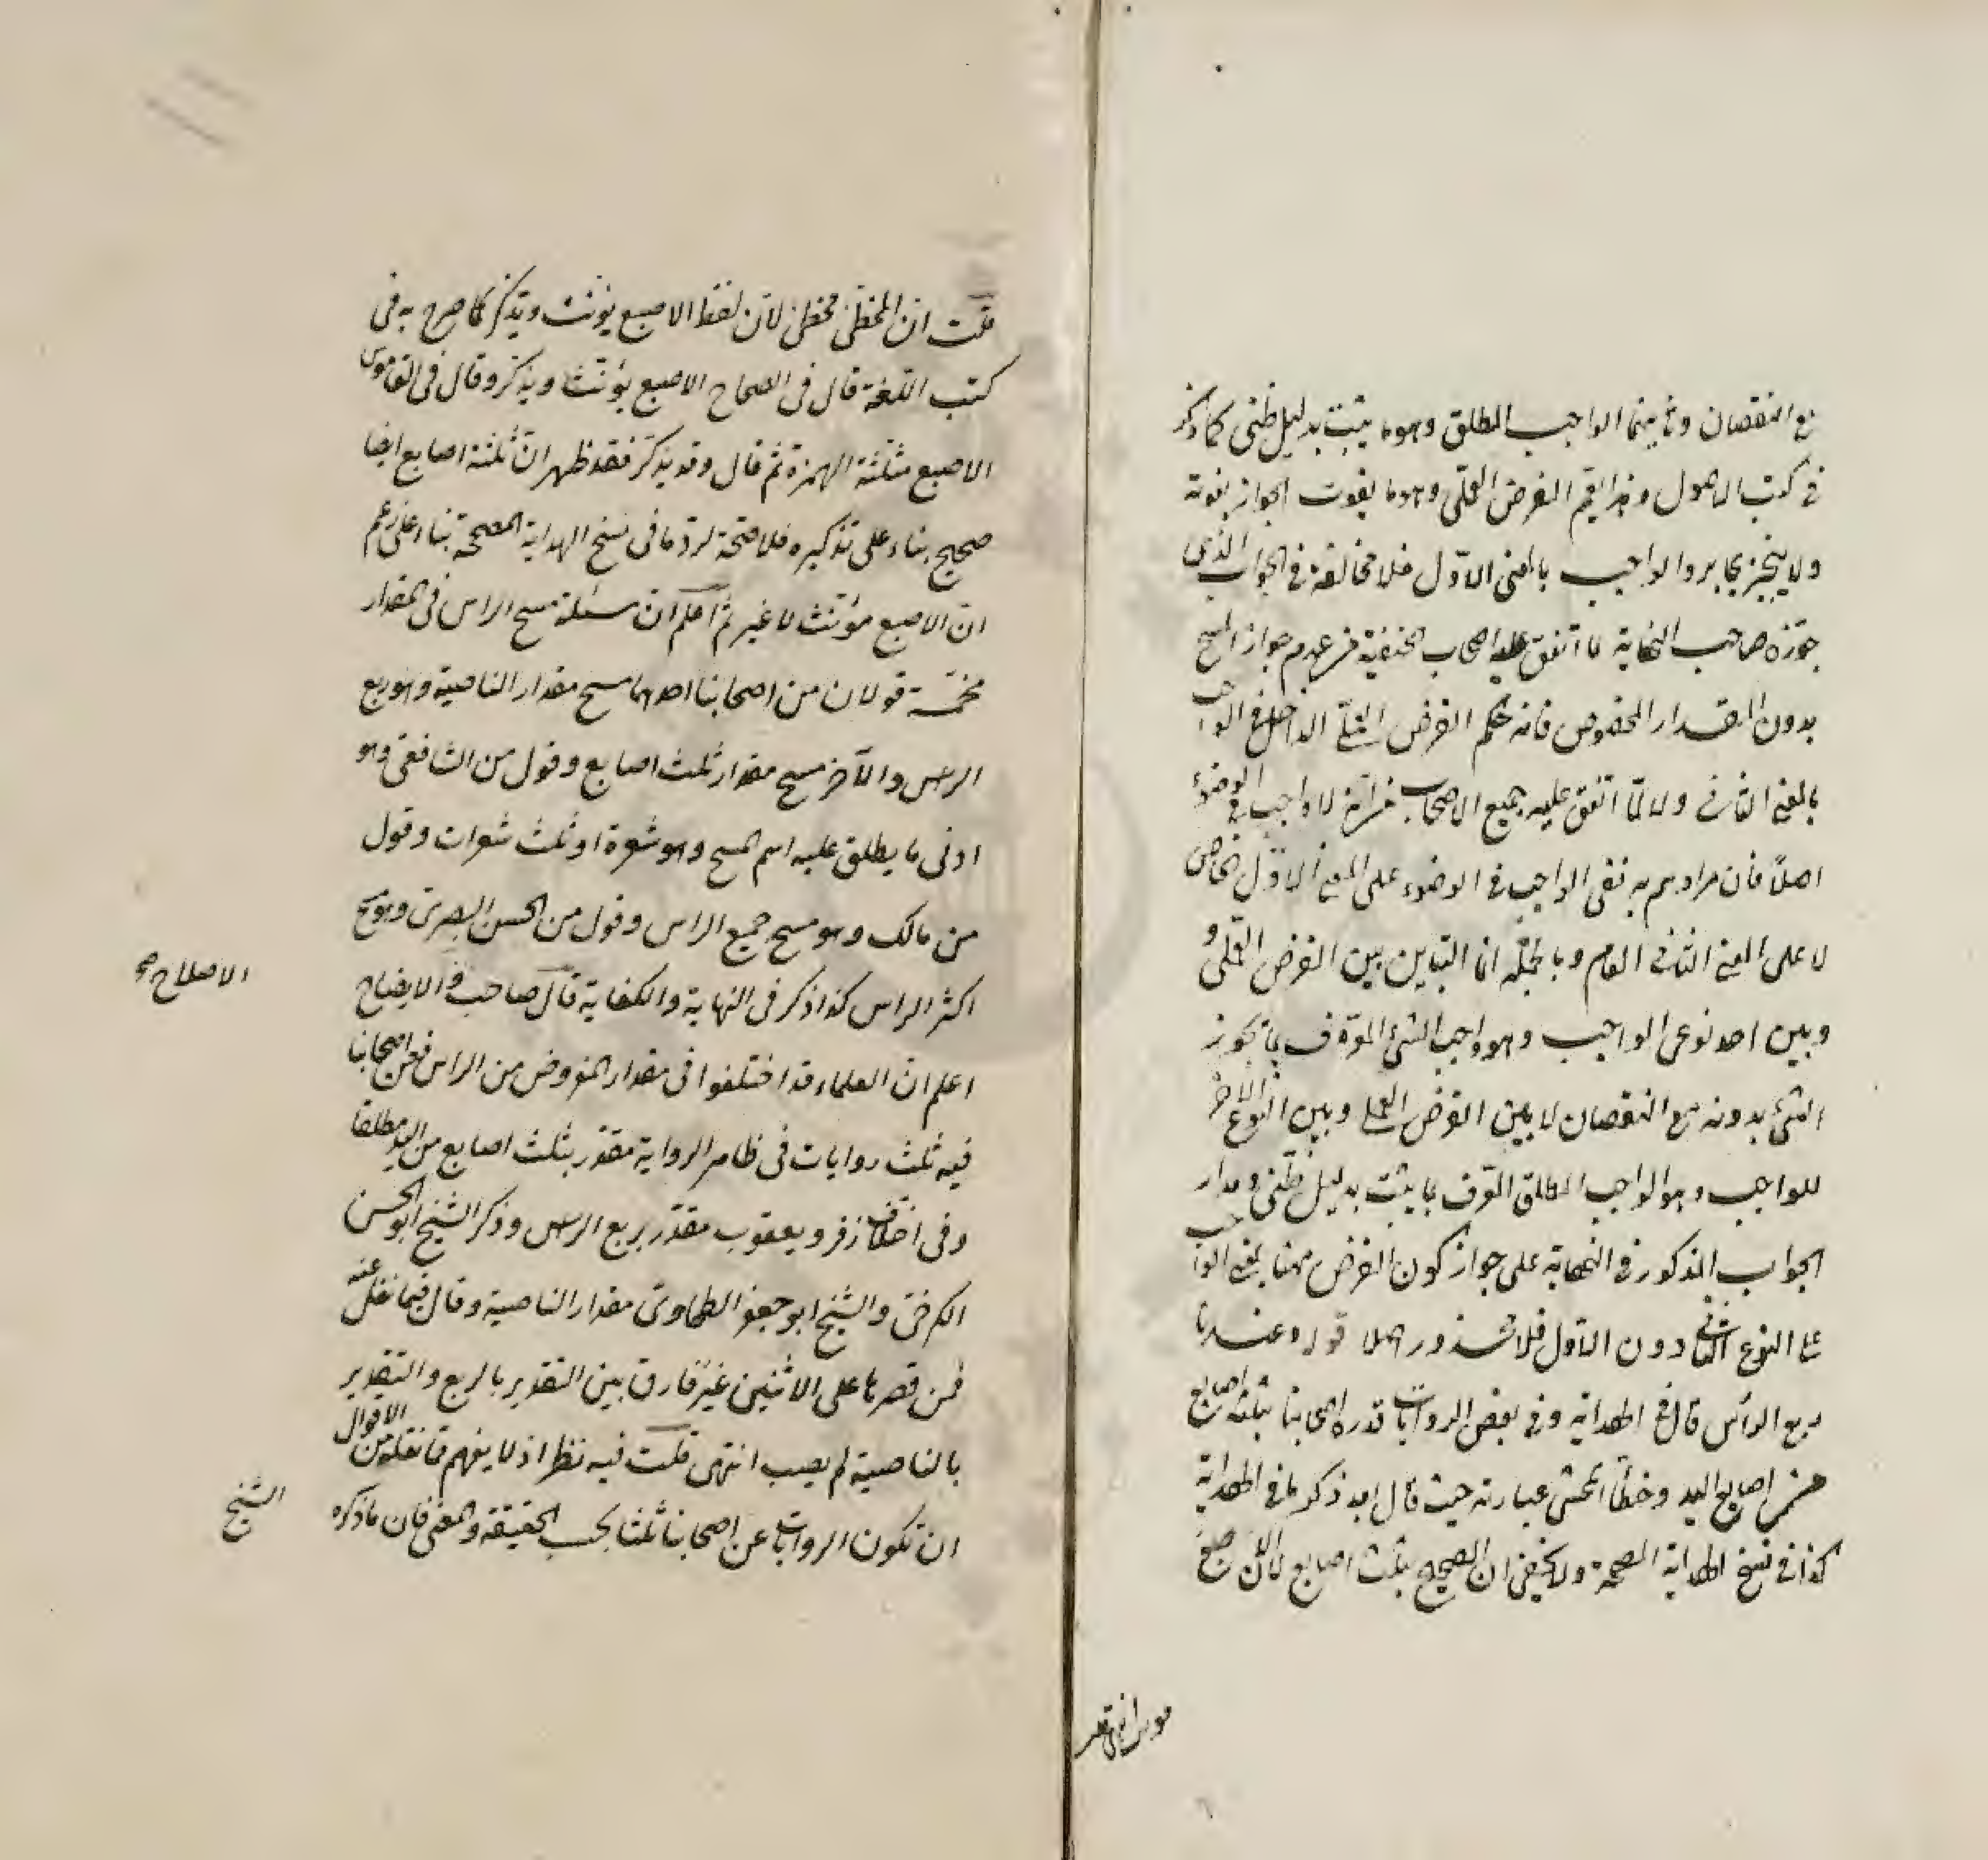 مع النقصان وثانيهما الواجب المطلق وهو ما يثبت بدليل ظني كما ذكر
في كتب الاصول وهذا يقم الفرض العملي وهو ما يفوت الجواز بفوته
ولا ينجبر بجابر والواجب بالمعنى الاول فلا مخالفة في الجواب الذي
جوزه صاحب النهاية لما اتفق عليه اصحاب الحنفية من عدم جواز المسح
بدون المقدار المخصوص فانه حكم الفرض العملي الداخل في الواجب
بالمعنى الثاني ولا لما اتفق عليه جميع الاصحاب من انه لا واجب في الوضوء
اصلا فان مرادهم به نفى الواجب في الوضوء على المعنى الاول الخاص
لا على المعنى الثاني العام وبالجملة انما التباين بين الفرض العملي و
وبين احد نوعى الواجب وهو واجب الشئ المعرف بما يجوز
الشئ بدونه مع النقصان لا بين الفرض العملي وبين النوع الآخر
للواجب وهو الواجب المطلق المعرف بما يثبت بدليل ظني ومدار
الجواب المذكور في النهاية على جواز كون الفرض ههنا بمعنى الواجب
على النوع الثاني دون الاول فلا محذور اصلا قوله وعندنا
ربع الرأس قال في الهداية وفي بعض الروايات قدره اصحابنا بثلثة اصابع
من اصابع اليد وخطأ المحشى عبارته حيث قال بعد ذكر ما في الهداية
كذا في نسخ الهداية المصححة ولا يخفى ان الصحيح بثلث اصابع لان الاصبع
قلت ان المخطئ مخطئ لان لفظ الاصبع يؤنث ويذكر كما صرح به فى
كتب اللغة قال فى الصحاح الاصبع يؤنث ويذكر وقال فى القاموس
الاصبع مثلثة الهمزة ثم قال وقد يذكر فقد ظهر ان ثلثة اصابع ايضا
صحيح بناء على تذكيره فلا صحة لرد ما فى نسخ الهداية المصححة بناء على زعم
ان الاصبع مؤنث لا غير ثم اعلم ان مسئلة مسح الراس فى المقدار
مخمسة قولان من اصحابنا احدهما مسح مقدار الناصية وهو ربع
الراس والآخر مسح مقدار ثلث اصابع وقول من الشافعى وهو
ادنى ما يطلق عليه اسم المسح وهو شعرة او ثلث شعرات وقول
من مالك وهو مسح جميع الراس وقول من الحسن البصرى وهو مسح
اكثر الراس كذا ذكر فى النهاية والكفاية قال صاحب الايضاح
الاصلاح و صح
اعلم ان العلماء قد اختلفوا فى مقدار المفروض من الراس فعن اصحابنا
فيه ثلث روايات فى ظاهر الرواية مقدر بثلث اصابع من اليد مطلقا
وفى اختلاف زفر ويعقوب مقدر بربع الراس وذكر الشيخ ابو الحسن
الكرخى والشيخ ابو جعفر الطحاوى مقدار الناصية وقال فيما نقل عنه
فمن قصرها على الاثنين غير فارق بين التقدير بالربع والتقدير
بالناصية لم يصب انتهى قلت فيه نظر اذ لا يفهم مما نقله من الاقوال
ان تكون الروايات عن اصحابنا ثلثا بحسب الحقيقة والمعنى فان ما ذكره
الشيخ